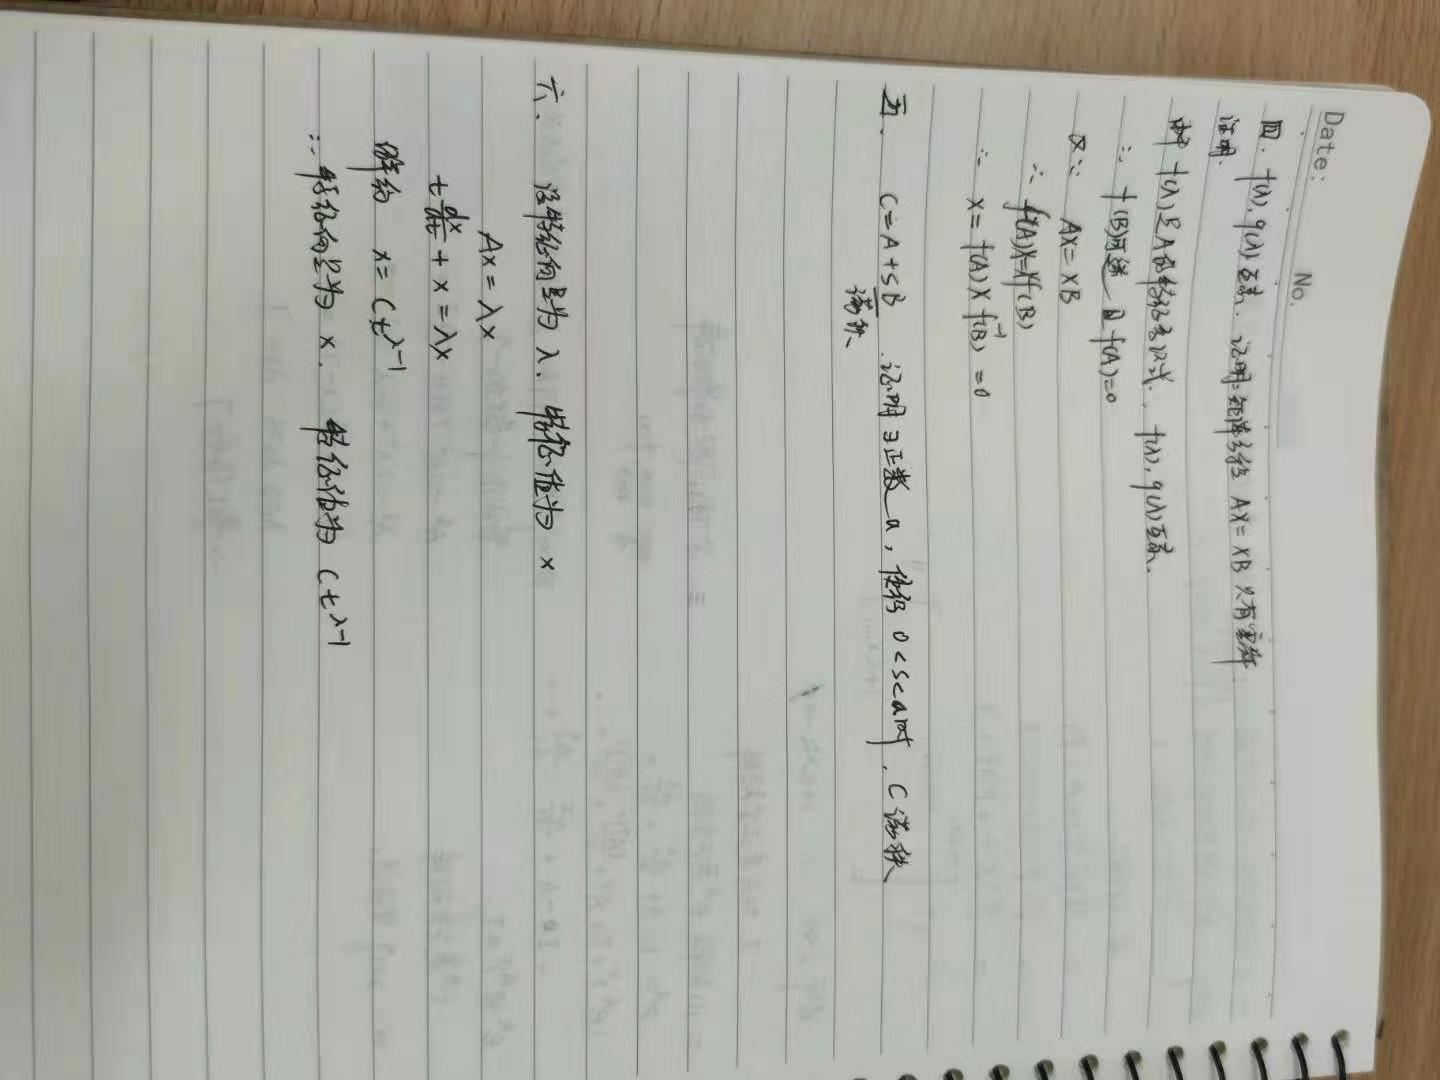 Date:
No.
四. f(λ), g(λ) 互素. 证明: 矩阵方程 AX = XB 只有零解
证明.
由于 f(λ) 是A的特征多项式. f(λ), g(λ) 互素.
∴ f(B)可逆 且 f(A)=0
又∵ AX = XB
∴ f(A)X=Xf(B)
∴ X = f(A) X f(B)⁻¹ = 0
五. C = A + SB . 证明 ∃正数 a, 使得 0<s<a时, C 满秩
满秩
六. 设特征向量为 λ. 特征值为 x
Ax = λx
t dx/dt + x = λx
解的 x = Ct^{λ-1}
∴ 特征向量为 x. 特征值为 Ct^{λ-1}